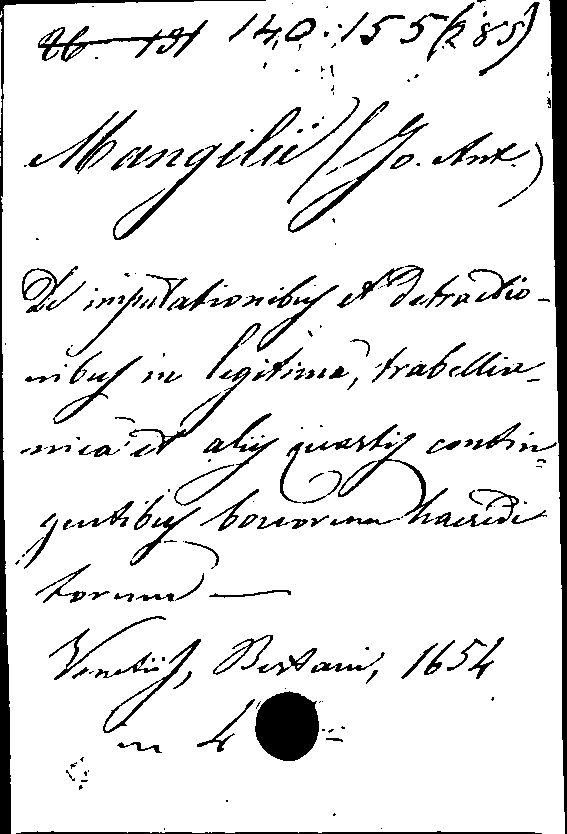 26. 131 140.155 (285)
Mangilii (Jo. Ant.)
De imputationibus et detractio-
nibus in legitima, trabellia-
nica et alijs quartis contin-
gentibus bonorum haeredi
torum —
Venetijs, Bertani, 1654
in 4